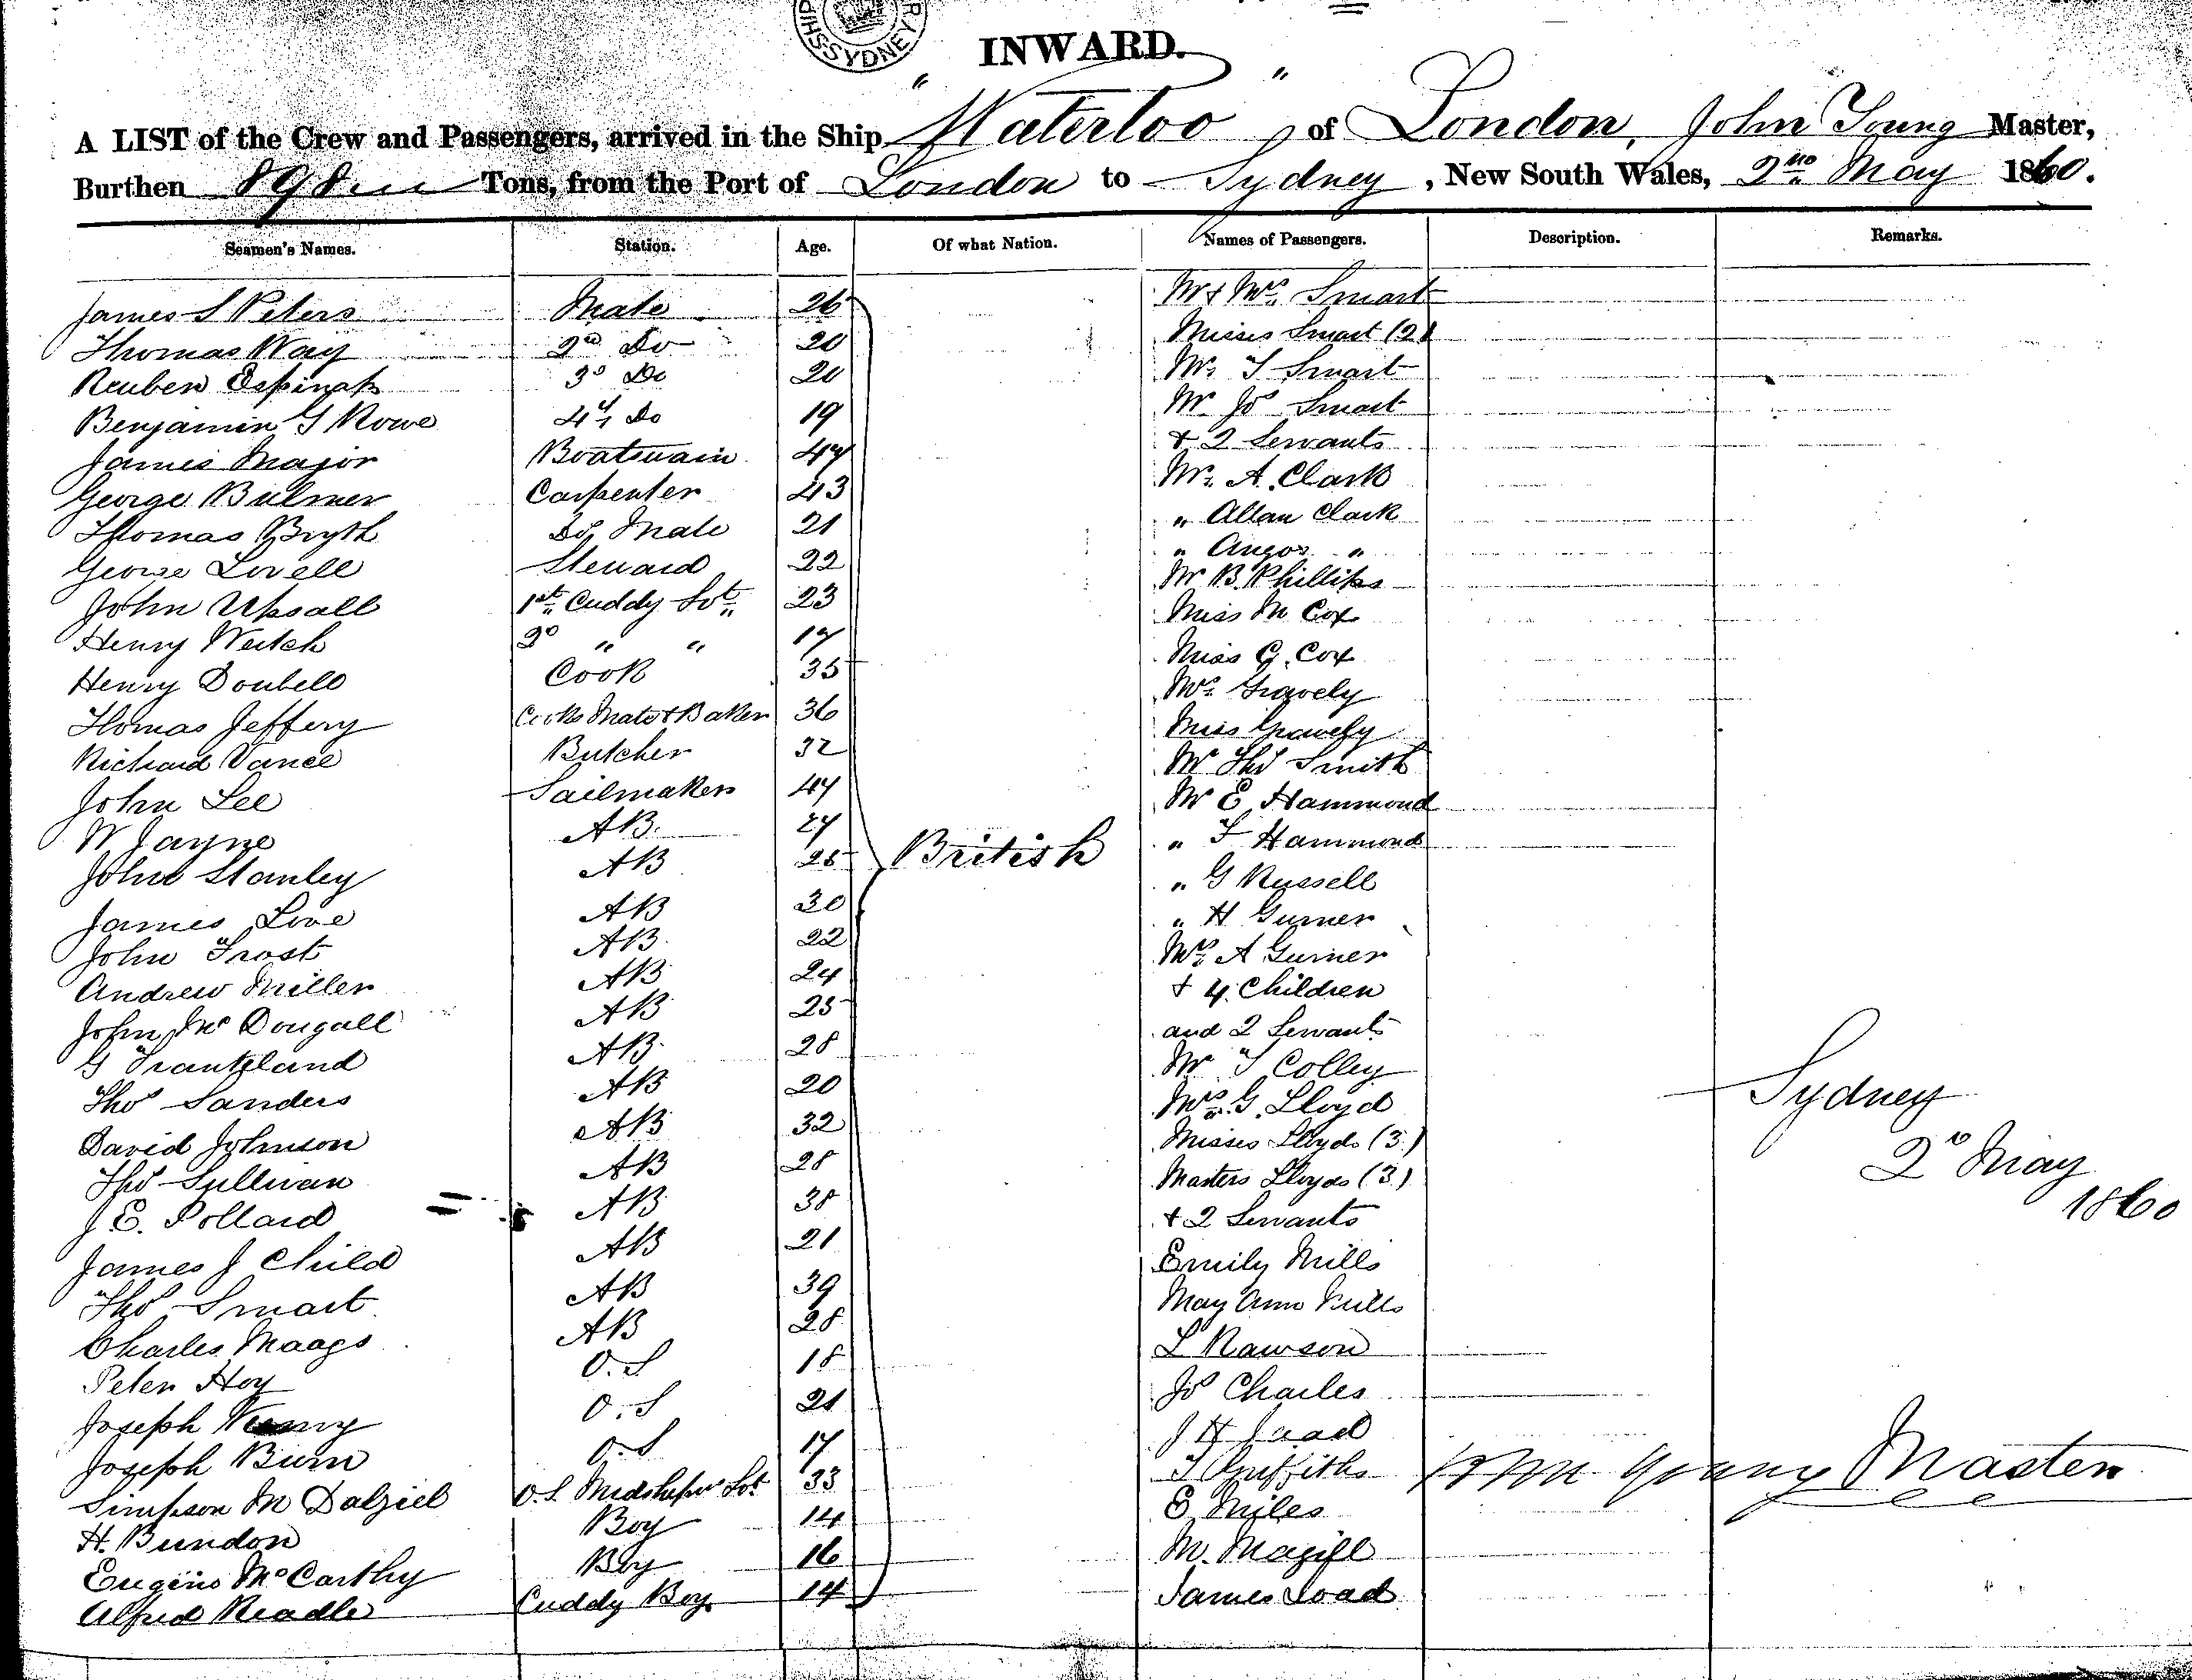 SHIP SYDNEY
INWARD.
A LIST of the Crew and Passengers, arrived in the Ship "Waterloo" of London, John Young Master,
Burthen 898 Tons, from the Port of London to Sydney, New South Wales, 2nd May 1860.
Seamen's Names. Station. Age. Of what Nation. Names of Passengers. Description. Remarks.
James S Peters Mate 26 Mr & Mrs Smart
Thomas Way 2nd Do 20 Misses Smart (2)
Reuben Espinak 3d Do 20 Mr. T Smart
Benjamin G Rowe 4th Do 19 Mr Jos Smart
James Major Boatswain 47 + 2 Servants
George Bulmer Carpenter 43 Mr. A. Clark
Thomas Bryth Do Mate 21 " Allan Clark
George Lovell Steward 22 " Angos "
John Upsall 1st Cuddy Svt 23 Mr B. Phillips
Henry Weitch 2d " " 17 Miss M Cox
Henry Doubell Cook 35 Miss G. Cox
Thomas Jeffery Cooks Mate & Baker 36 Mrs Gravely
Richard Vance Butcher 32 Miss Gravely
John Lee Sailmaker 44 Mr Thos Smith
W Jayne AB. 27 Mr E Hammond
John Stanley AB 25 British " F Hammond
James Love AB 30 " G Russell
John Frost AB 22 " H Gurner
Andrew Miller AB 24 Mrs A Gurner
John McDougall AB 25 + 4 Children
G AB 28 and 2 Servants
Thos Sanders AB 20 Mr T Colley
David Johnson AB 32 Mrs G. Lloyd
Thos Sullivan AB 28 Misses Lloyds (3)
J E. Pollard AB 38 Masters Lloyds (3)
James J Child AB 21 + 2 Servants
Thos Smart AB 39 Emily Mills
Charles Maags AB 28 May Ann Mills
Peter Hoy O.S 18 L Rawson
Joseph O.S 21 Jos Charles
Joseph Burn O.S 17 J H
Simpson M Dalziel O.S. Midshipmn Svt 33 T Griffiths
H. Bundon Boy 14 E Miles
Eugene McCarthy Boy 16 M. Magill
Alfred Readle Cuddy Boy 14 James Load
Sydney
2d May
1860
John Young Master